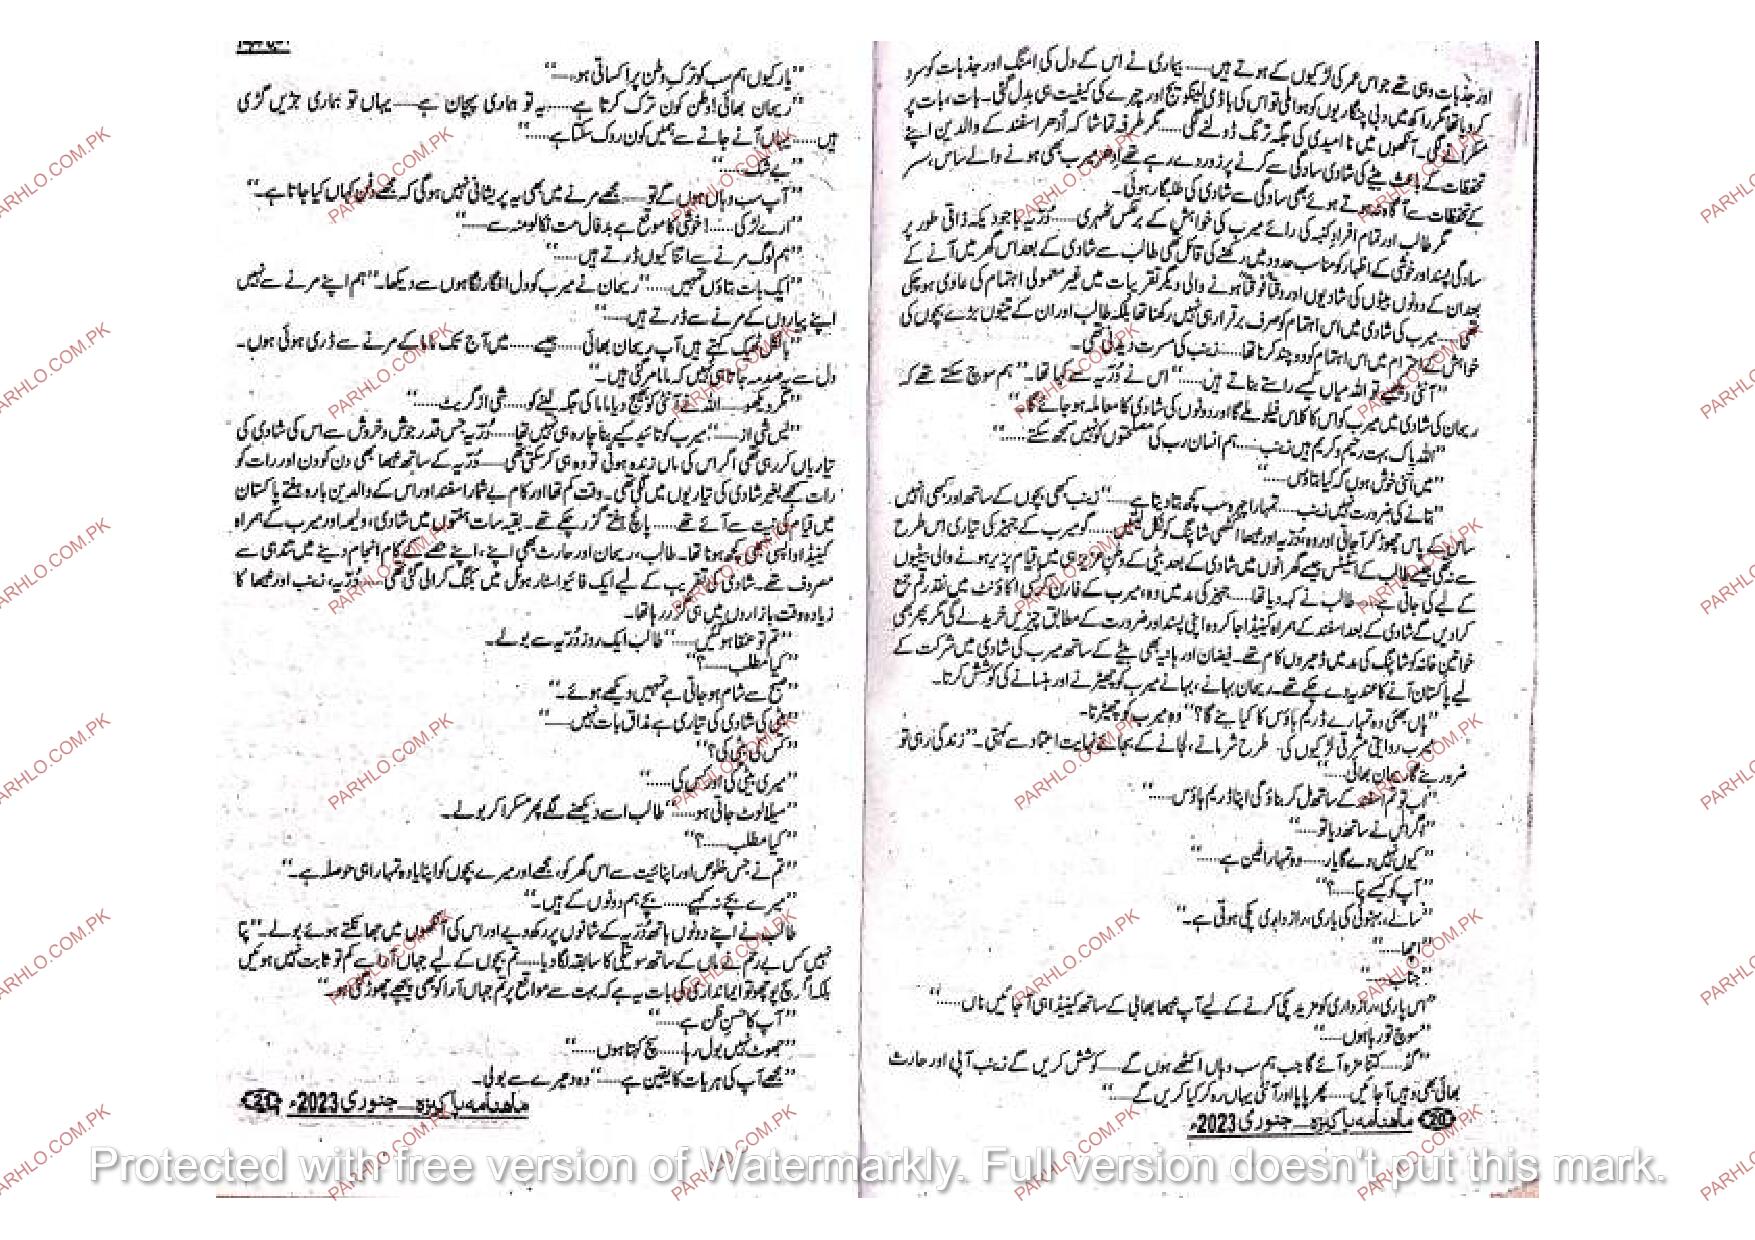 اور جذبات وہی تھے جو اس عمر کی لڑکیوں کے ہوتے ہیں...... بیماری نے اس کے دل کی امنگ اور جذبات کو سرد
کر دیا تھا مگر راکھ میں دبی چنگاریوں کو ہوا ملی تو اس کی باڈی لینگویج اور چہرے کی کیفیت ہی بدل گئی۔ بات، بات پر
مسکرانے لگی۔ آنکھوں میں ناامیدی کی جگہ ترنگ ڈولنے لگی...... مگر طرفہ تماشا کہ اُدھر اسفند کے والدین اپنے
تحفظات کے باعث بیٹے کی شادی سادگی سے کرنے پر زور دے رہے تھے اِدھر میرب بھی ہونے والے ساس، سسر
کے تحفظات سے آگاہ نہ ہوتے ہوئے بھی سادگی سے شادی کی طلبگار ہوئی۔
مگر طالب اور تمام افرادِ کنبہ کی رائے میرب کی خواہش کے برعکس ٹھہری...... دُرّیہ باوجودیکہ ذاتی طور پر
سادگی پسند اور خوشی کے اظہار کو مناسب حدود میں رکھنے کی قائل تھی طالب سے شادی کے بعد اس گھر میں آنے کے
بعد ان کے دونوں بیٹوں کی شادیوں اور وقتاً فوقتاً ہونے والی دیگر تقریبات میں غیر معمولی اہتمام کی عادی ہو چکی
تھی...... میرب کی شادی میں اس اہتمام کو صرف برقرار ہی نہیں رکھنا تھا بلکہ طالب اور ان کے تینوں بڑے بچوں کی
خواہش کے احترام میں اس اہتمام کو دوچند کرنا تھا...... زینب کی مسرت دیدنی تھی۔
’’آنٹی دیکھیے تو اللہ میاں کیسے راستے بناتے ہیں......‘‘ اس نے دُرّیہ سے کہا تھا۔ ’’ہم سوچ سکتے تھے کہ
ریحان کی شادی میں میرب کو اس کا کلاس فیلو ملے گا اور دونوں کی شادی کا معاملہ ہو جائے گا۔‘‘
’’اللہ پاک بہت رحیم و کریم ہیں زینب...... ہم انسان رب کی مصلحتوں کو نہیں سمجھ سکتے......‘‘
’’میں اتنی خوش ہوں کہ کیا بتاؤں......‘‘
’’بتانے کی ضرورت نہیں زینب...... تمہارا چہرہ سب کچھ بتا دیتا ہے......‘‘ زینب کبھی بچوں کے ساتھ اور کبھی انہیں
ساس کے پاس چھوڑ کر آجاتی اور وہ، دُرّیہ اور عیہا اکٹھی شاپنگ کو نکل لیتیں...... گو میرب کے جہیز کی تیاری اس طرح
سے نہ تھی جیسے طالب کے اسٹیٹس جیسے گھرانوں میں شادی کے بعد بیٹی کے وطنِ عزیز ہی میں قیام پزیر ہونے والی بیٹیوں
کے لیے کی جاتی ہے...... طالب نے کہہ دیا تھا...... جہیز کی مد میں وہ، میرب کے فارن کرنسی اکاؤنٹ میں نقد رقم جمع
کرا دیں گے شادی کے بعد اسفند کے ہمراہ کینیڈا جا کر وہ اپنی پسند اور ضرورت کے مطابق چیزیں خرید لے گی مگر پھر بھی
خواتین خانہ کو شاپنگ کی مد میں ڈھیروں کام تھے۔ فیضان اور ہانیہ بھی بیٹے کے ساتھ میرب کی شادی میں شرکت کے
لیے پاکستان آنے کا عندیہ دے چکے تھے۔ ریحان بہانے، بہانے میرب کو چھیڑنے اور ہنسانے کی کوشش کرتا۔
’’ہاں بھئی وہ تمہارے ڈریم ہاؤس کا کیا بنے گا؟‘‘ وہ میرب کو چھیڑتا۔
میرب روایتی مشرقی لڑکیوں کی طرح شرمانے، لجانے کے بجائے نہایت اعتماد سے کہتی۔ ’’زندگی رہی تو
ضرور بنے گا ریحان بھائی......‘‘
’’اب تو تم اسفند کے ساتھ مل کر بناؤ گی اپنا ڈریم ہاؤس......‘‘
’’اگر اس نے ساتھ دیا تو......‘‘
’’کیوں نہیں دے گا یار...... وہ تمہارا فین ہے......‘‘
’’آپ کو کیسے پتا......؟‘‘
’’سالے، بہنوئی کی یاری، رازداری پکی ہوتی ہے۔‘‘
’’اچھا......‘‘
’’جناب......‘‘
’’اس یاری، رازداری کو مزید پکی کرنے کے لیے آپ عیہا بھابی کے ساتھ کینیڈا ہی آ جائیں ناں......‘‘
’’سوچ تو رہا ہوں......‘‘
’’گڈ...... کتنا مزہ آئے گا جب ہم سب وہاں اکٹھے ہوں گے...... کوشش کریں گے زینب آپی اور حارث
بھائی بھی وہیں آ جائیں...... پھر پاپا اور آنٹی یہاں رہ کر کیا کریں گے......‘‘
20 ماهنامه پاکیزہ — جنوری 2023ء
’’یار کیوں ہم سب کو ترکِ وطن پر اکساتی ہو......‘‘
’’ریحان بھائی! وطن کون ترک کرتا ہے...... یہ تو ہماری پہچان ہے...... یہاں تو ہماری جڑیں گڑی
ہیں...... یہاں آنے جانے سے ہمیں کون روک سکتا ہے......‘‘
’’بے شک......‘‘
’’آپ سب وہاں ہوں گے تو...... مجھے مرنے میں بھی یہ پریشانی نہیں ہو گی کہ مجھے دفن کہاں کیا جاتا ہے۔‘‘
’’ارے لڑکی......! خوشی کا موقع ہے بدفال مت نکالو منہ سے......‘‘
’’ہم لوگ مرنے سے اتنا کیوں ڈرتے ہیں......‘‘
’’ایک بات بتاؤں تمہیں......‘‘ ریحان نے میرب کو دل افگار نگاہوں سے دیکھا۔ ’’ہم اپنے مرنے سے نہیں
اپنے پیاروں کے مرنے سے ڈرتے ہیں......‘‘
’’بالکل ٹھیک کہتے ہیں آپ ریحان بھائی...... جیسے...... میں آج تک ماما کے مرنے سے ڈری ہوئی ہوں۔
دل سے یہ صدمہ جاتا ہی نہیں کہ ماما مر گئی ہیں۔‘‘
’’مگر دیکھو...... اللہ نے آنٹی کو بھیج دیا ماما کی جگہ لینے کو...... شی از گریٹ......‘‘
’’یس شی از......‘‘ میرب کو تائید کیے بنا چارہ ہی نہیں تھا...... دُرّیہ جس قدر جوش و خروش سے اس کی شادی کی
تیاریاں کر رہی تھی اگر اس کی ماں زندہ ہوتی تو وہ ہی کر سکتی تھی...... دُرّیہ کے ساتھ عیہا بھی دن کو دن اور رات کو
رات سمجھے بغیر شادی کی تیاریوں میں لگی تھی۔ وقت کم تھا اور کام بے شمار اسفند اور اس کے والدین بارہ ہفتے پاکستان
میں قیام کی نیت سے آئے تھے...... پانچ ہفتے گزر چکے تھے۔ بقیہ سات ہفتوں میں شادی، ولیمہ اور میرب کے ہمراہ
کینیڈا واپسی بھی کچھ ہونا تھا۔ طالب، ریحان اور حارث بھی اپنے، اپنے حصے کے کام انجام دینے میں تندہی سے
مصروف تھے۔ شادی کی تقریب کے لیے ایک فائیو اسٹار ہوٹل میں بکنگ کرالی گئی تھی...... دُرّیہ، زینب اور عیہا کا
زیادہ وقت بازاروں میں ہی گزر رہا تھا۔
’’تم تو عنقا ہو گئیں......‘‘ طالب ایک روز دُرّیہ سے بولے۔
’’کیا مطلب......؟‘‘
’’صبح سے شام ہو جاتی ہے تمہیں دیکھے ہوئے۔‘‘
’’بیٹی کی شادی کی تیاری ہے مذاق بات نہیں......‘‘
’’کس کی بیٹی کی؟‘‘
’’میری بیٹی کی اور کس کی......‘‘
’’میلا لوٹ جاتی ہو......‘‘ طالب اسے دیکھنے لگے پھر مسکرا کر بولے۔
’’کیا مطلب......؟‘‘
’’تم نے جس خلوص اور اپنائیت سے اس گھر کو، مجھے اور میرے بچوں کو اپنایا وہ تمہارا ہی حوصلہ ہے۔‘‘
’’میرے بچے نہ کہیے...... بچے ہم دونوں کے ہیں۔‘‘
طالب نے اپنے دونوں ہاتھ دُرّیہ کے شانوں پر رکھ دیے اور اس کی آنکھوں میں جھانکتے ہوئے بولے۔ ’’پتا
نہیں کس بے رحم نے ماں کے ساتھ سوتیلی کا سابقہ لگا دیا...... تم بچوں کے لیے جہاں آرا سے کم تو ثابت نہیں ہوئیں
بلکہ اگر سچ پوچھو تو ایمانداری کی بات یہ ہے کہ بہت سے مواقع پر تم جہاں آرا کو بھی پیچھے چھوڑ گئی ہو۔‘‘
’’آپ کا حسنِ ظن ہے......‘‘
’’جھوٹ نہیں بول رہا...... سچ کہتا ہوں......‘‘
’’مجھے آپ کی ہر بات کا یقین ہے......‘‘ وہ دھیرے سے بولی۔
ماهنامه پاکیزہ — جنوری 2023ء 21
PARHLO.COM.PK
Protected with free version of Watermarkly. Full version doesn't put this mark.